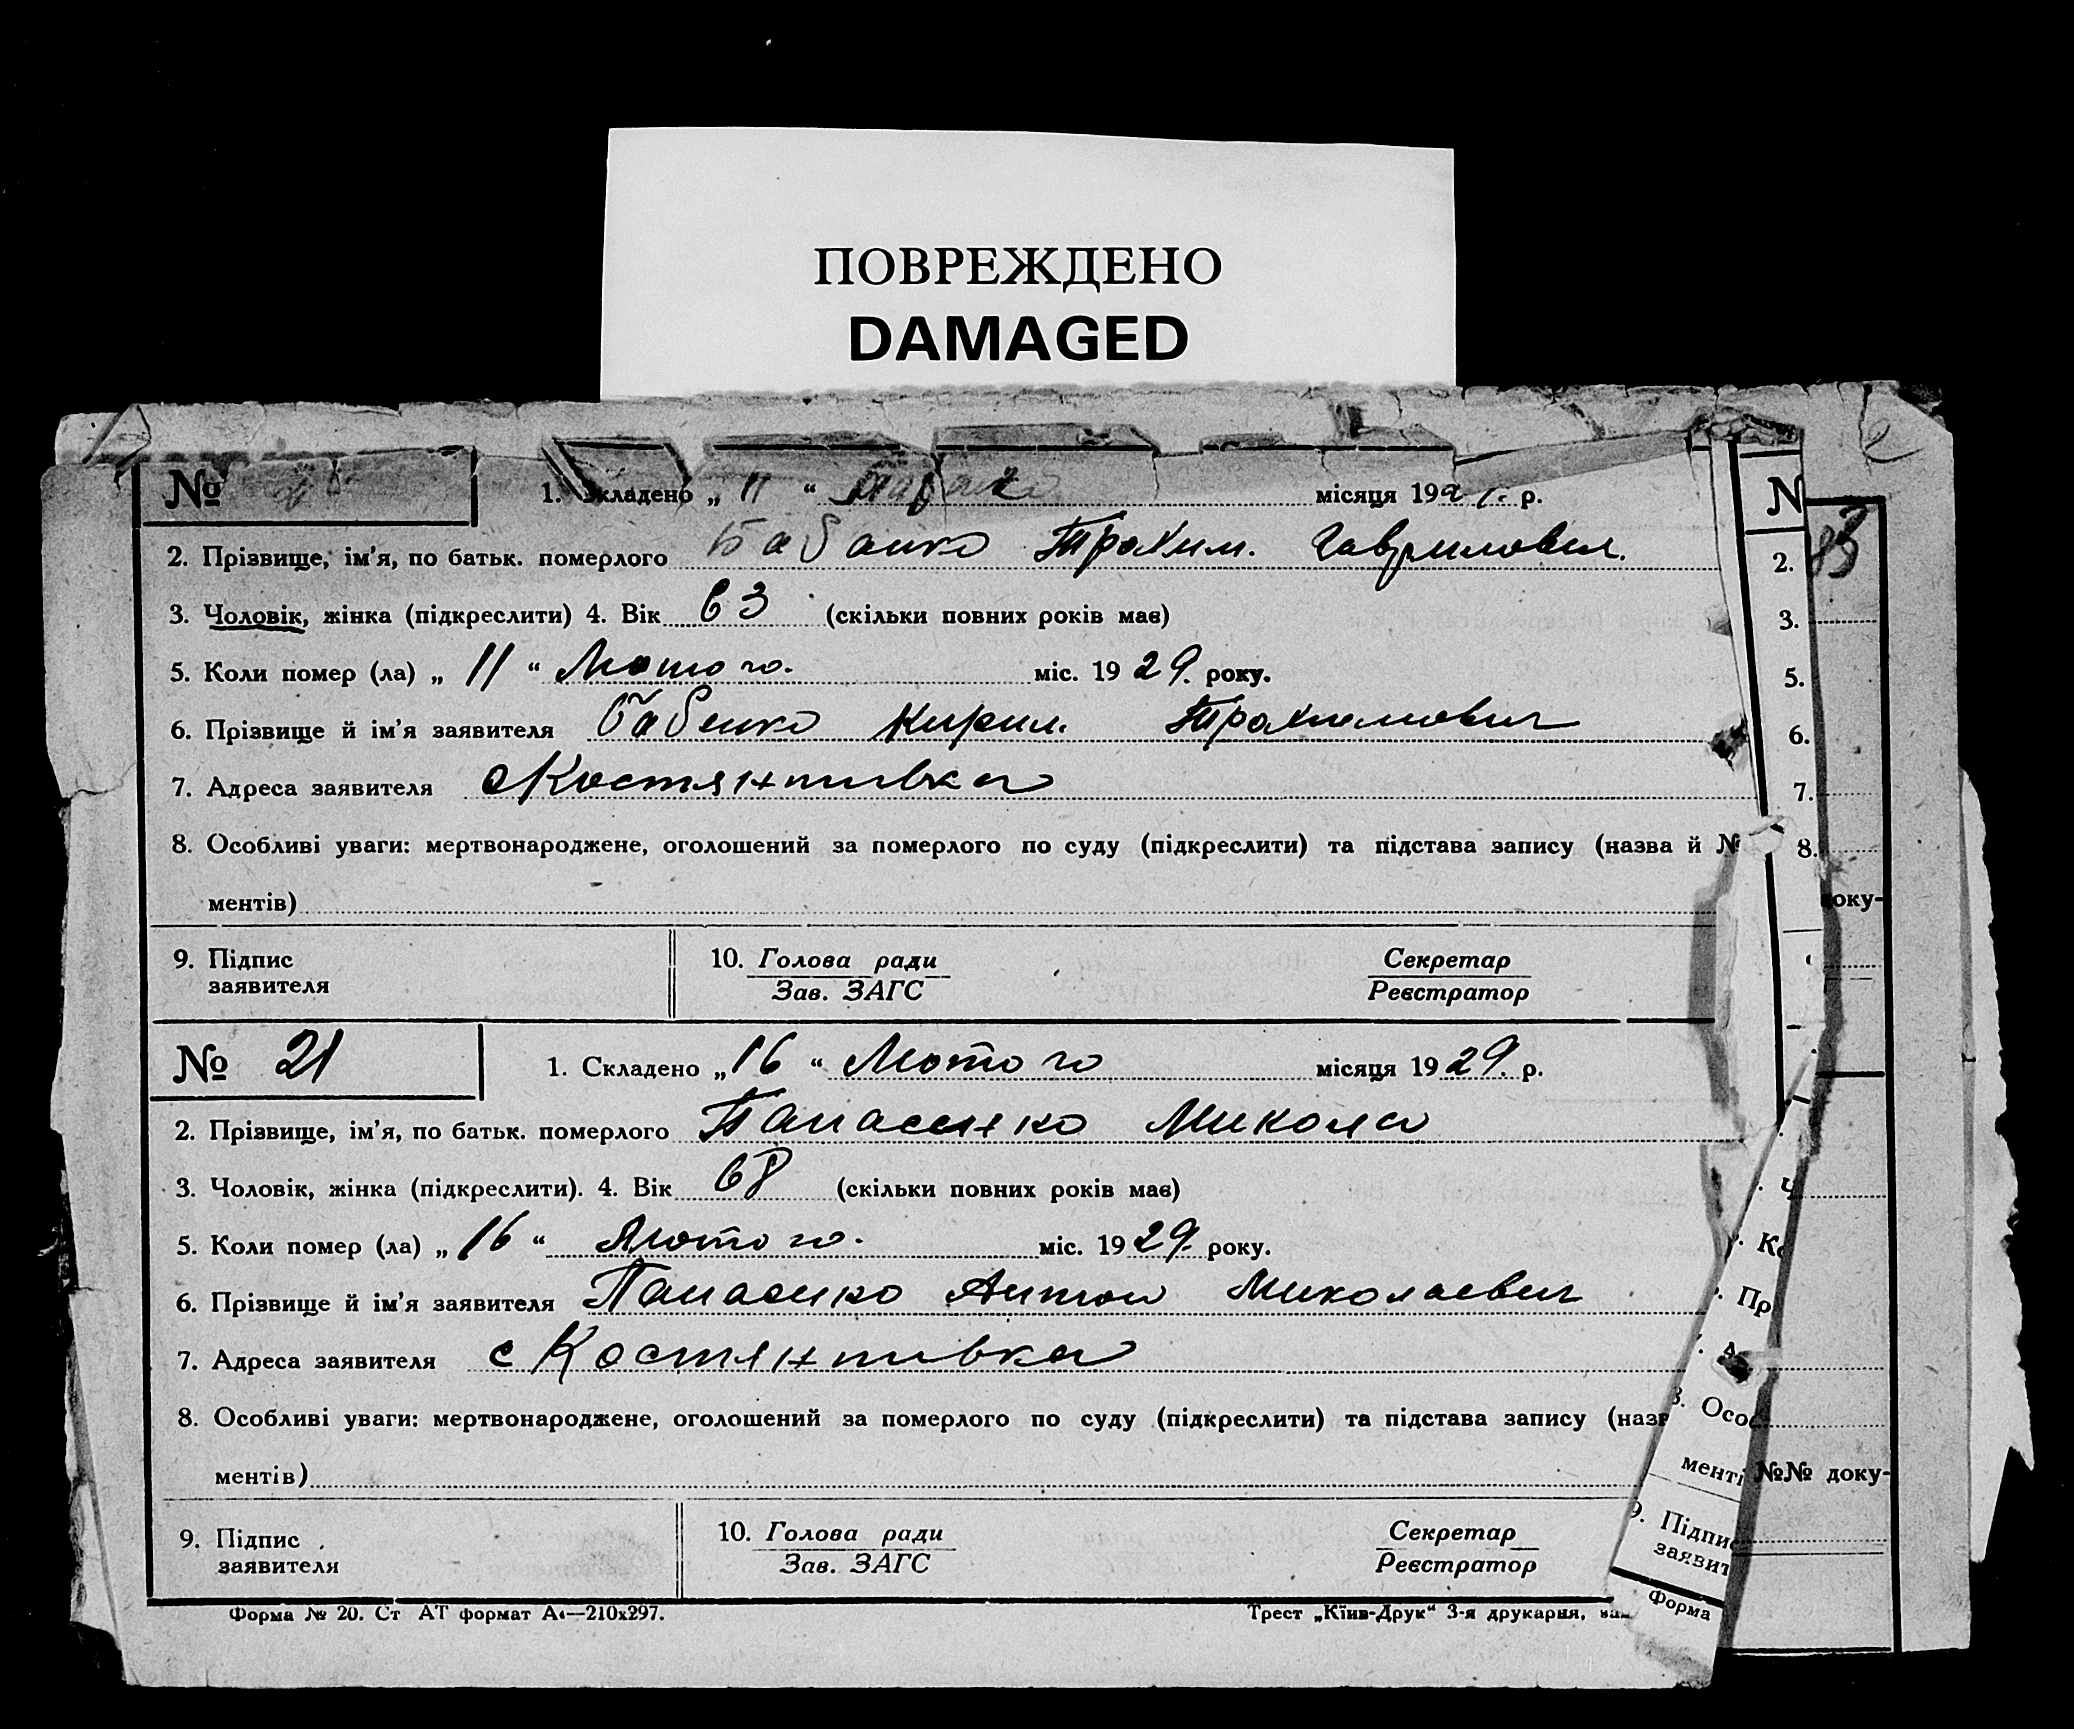 ПОВРЕЖДЕНО
DAMAGED
№
1. Складено „ 11 “ місяця 1929. р.
2. Прізвище, ім’я, по батьк. померлого Бабенко Трохим. Гаврилович.
3. Чоловік, жінка (підкреслити) 4. Вік 63 (скільки повних років має)
5. Коли помер (ла) „ 11 “ Лютого. міс. 1929. року.
6. Прізвище й ім’я заявителя Бабенко Кирил. Трохимович
7. Адреса заявителя с Костянтивка
8. Особливі уваги: мертвонароджене, оголошений за померлого по суду (підкреслити) та підстава запису (назва й №
ментів)
9. Підпис заявителя
10. Голова ради
Зав. ЗАГС
Секретар
Реєстратор
№ 21
1. Складено „ 16 “ Лютого місяця 1929. р.
2. Прізвище, ім’я, по батьк. померлого Панасенко Микола
3. Чоловік, жінка (підкреслити). 4. Вік 68 (скільки повних років має)
5. Коли помер (ла) „ 16 “ Лютого. міс. 1929. року.
6. Прізвище й ім’я заявителя Панасенко Антон Миколаевич
7. Адреса заявителя с Костянтивка
8. Особливі уваги: мертвонароджене, оголошений за померлого по суду (підкреслити) та підстава запису (назв
ментів)
9. Підпис заявителя
10. Голова ради
Зав. ЗАГС
Секретар
Реєстратор
Форма № 20. Ст АТ формат А4—210x297.
Трест „Київ-Друк“ 3-я друкарня,
N
2.
3.
5.
6.
7.
8.
оку-
Ч
Ко
Пр
А
8. Осо
менті
№№ доку-
9. Підпис
заявит
Форма